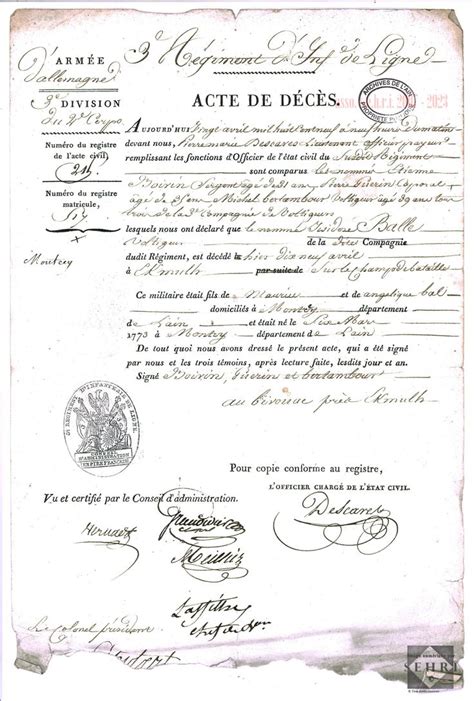 3e Régiment d'Inf. de Ligne
ARMÉE
d'allemagne
3e DIVISION
du 3e Corps
Numéro du registre
de l'acte civil,
Numéro du registre
matricule,
Montrey
ARCHIVES DE L'AIN
PROPRIÉTÉ PUBLIQUE
ACTE DE DÉCÈS.
AUJOURD'HUI vingt avril mil huit cent neuf à neuf heures du matin
devant nous, Pierre marie Descares Lieutenant officier payeur
remplissant les fonctions d'Officier de l'état civil du susdit Régiment
sont comparus les nommés Etienne
Boirin Sergent âgé de 31 ans, Pierre Guerin Caporal
âgé de ans Michel bertambour Voltigeur âgé 29 ans tous
trois de la 3e Compagnie de Voltigeurs
lesquels nous ont déclaré que le nommé Isidore Balle
Voltigeur de la dite Compagnie
dudit Régiment, est décédé le hier dix neuf avril
à Ekmulh par suite de Sur le champ de bataille
Ce militaire était fils de Maurice et de angelique bal
domiciliés à Montrey département
de L'ain et était né le Six Mars
1773 à Montrey département de L'ain
De tout quoi nous avons dressé le présent acte, qui a été signé
par nous et les trois témoins, après lecture faite, lesdits jour et an.
Signé Boirin, Guerin et bertambour
au bivouac près Ekmulh
3e RÉGIMENT D'INFANTERIE DE LIGNE
CONSEIL
D'ADMINISTRATION
EMPIRE FRANÇAIS
Pour copie conforme au registre,
L'OFFICIER CHARGÉ DE L'ÉTAT CIVIL.
Descares
Vu et certifié par le Conseil d'administration.
Le Colonel président
SEHRI